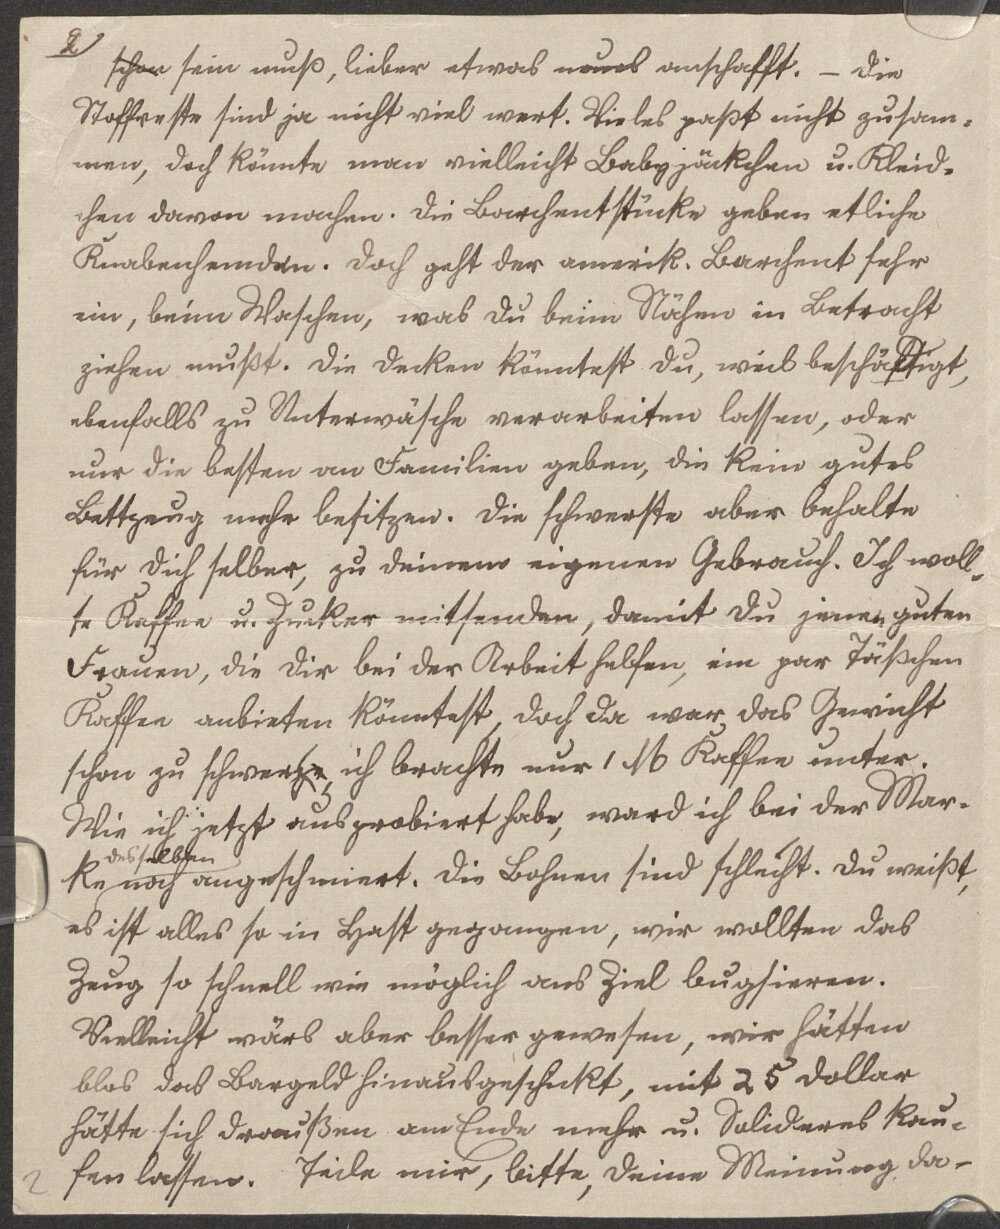 2
schon sein muß, lieber etwas neues anschafft. – Die
Stoffreste sind ja nicht viel wert. Vieles paßt nicht zusam-
men, doch könnte man vielleicht Babyjäckchen u. Kleid-
chen davon machen. Die Barchentstücke geben etliche
Knabenhemden. Doch geht der amerik. Barchent sehr
ein, beim Waschen, was Du beim Nähen in Betracht
ziehen mußt. Die Decken könntest Du, weil beschäftigt,
ebenfalls zu Unterwäsche verarbeiten lassen, oder
nur die besten an Familien geben, die kein gutes
Bettzeug mehr besitzen. Die schwerste aber behalte
für Dich selber, zu deinem eigenen Gebrauch. Ich woll-
te Kaffee u. Zucker mitsenden, damit Du jenen guten
Frauen, die Dir bei der Arbeit helfen, ein par Täßchen
Kaffee anbieten könntest, doch da war das Gewicht
schon zu schwer, ich brachte nur 1 ℔ Kaffee unter.
Wie ich jetzt ausprobiert habe, ward ich bei der Mar-
desselben
ke noch angeschmiert. Die Bohnen sind schlecht. Du weißt,
es ist alles so in Hast gegangen, wir wollten das
Zeug so schnell wie möglich ans Ziel bugsieren.
Vielleicht wärs aber besser gewesen, wir hätten
blos das Bargeld hinausgeschickt, mit 25 Dollar
hätte sich draußen am Ende mehr u. Solideres kau-
fen lassen. Teile mir, bitte, Deine Meinung da-
2